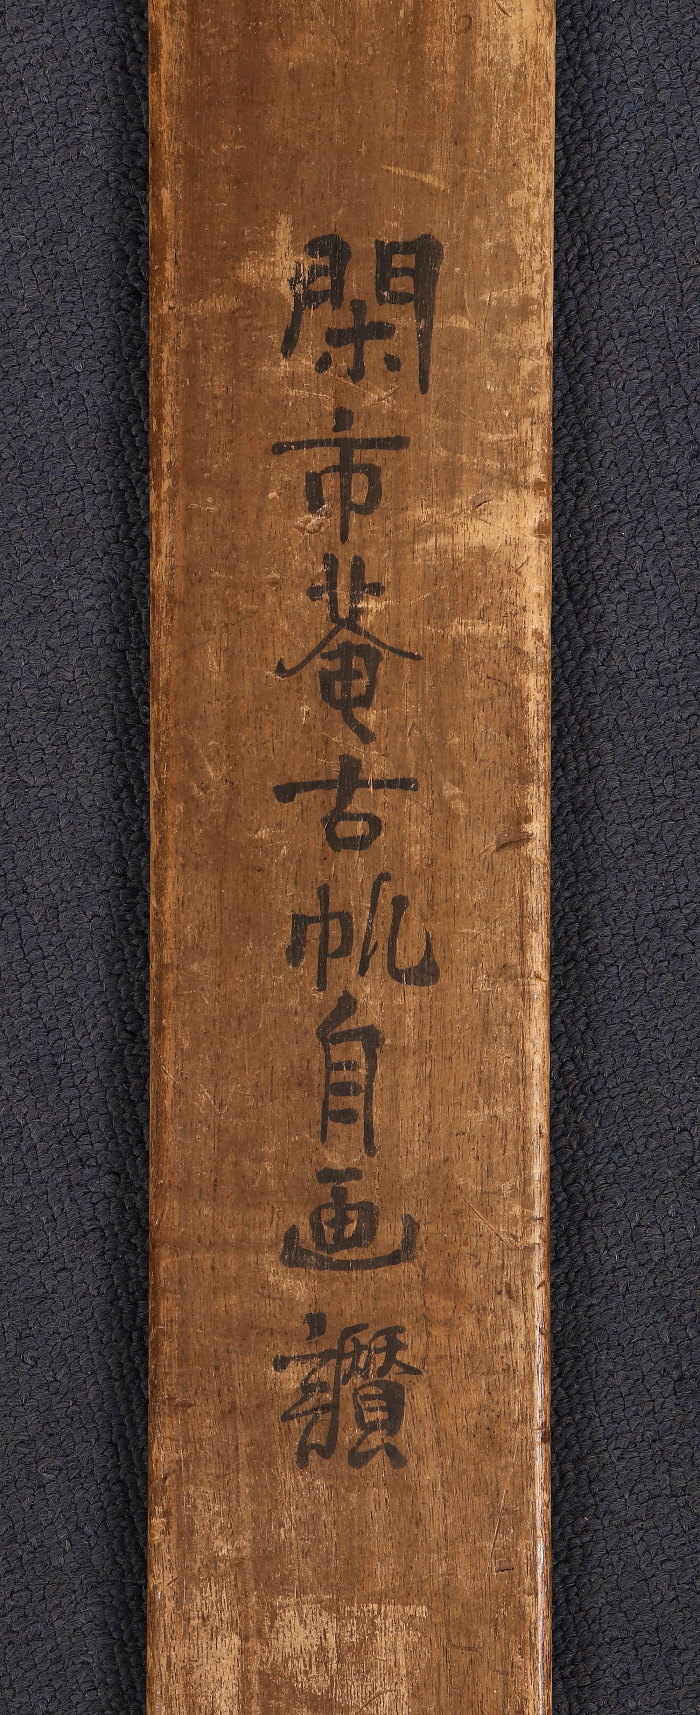 閑市菴古帆自画讃